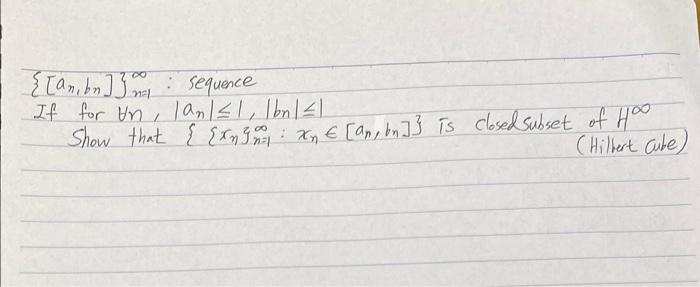 {[aₙ, bₙ]}ₙ₌₁^∞ : sequence
If for ∀n, |aₙ| ≤ 1, |bₙ| ≤ 1
Show that { {xₙ}ₙ₌₁^∞ : xₙ ∈ [aₙ, bₙ] } is closed subset of H^∞
(Hilbert Cube)